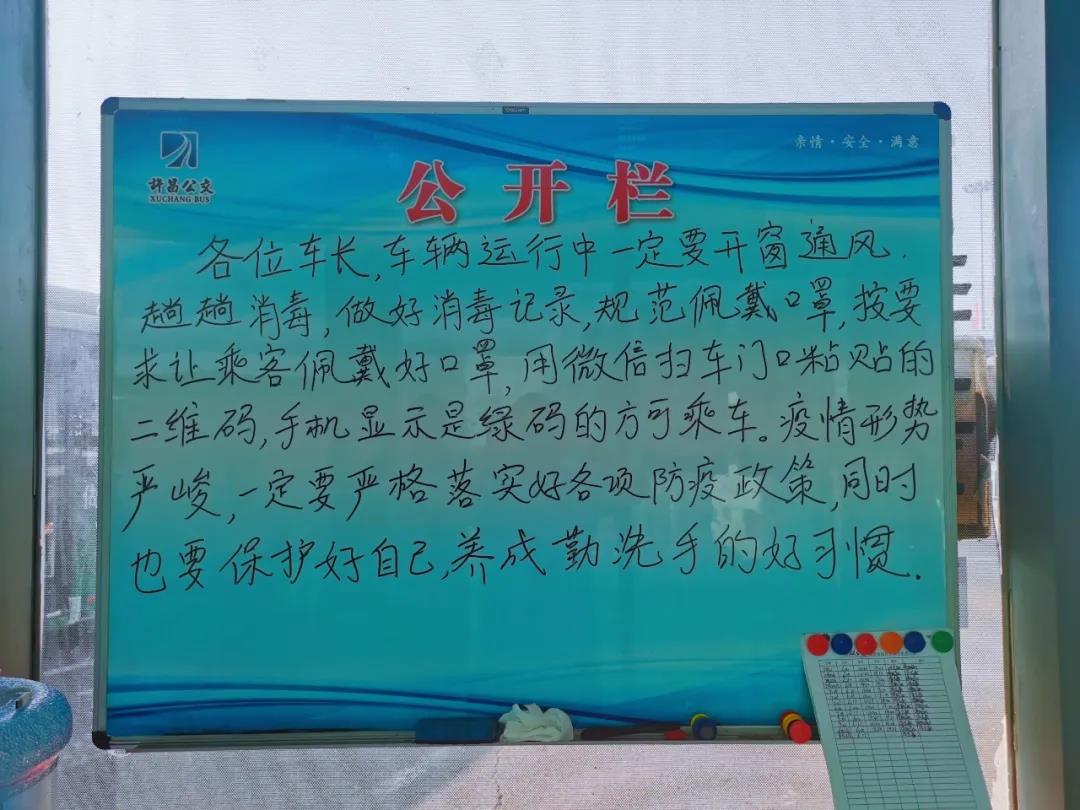 许昌公交
XUCHANG BUS
亲情·安全·满意
公开栏
各位车长,车辆运行中一定要开窗通风.
趟趟消毒,做好消毒记录,规范佩戴口罩,按要
求让乘客佩戴好口罩,用微信扫车门口粘贴的
二维码,手机显示是绿码的方可乘车。疫情形势
严峻,一定要严格落实好各项防疫政策,同时
也要保护好自己,养成勤洗手的好习惯.